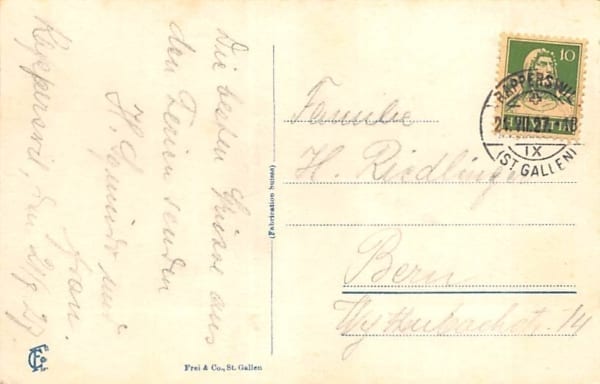 Die besten Grüsse aus
den Ferien senden
H. und
Frau.
Rapperswil, den 24/7 27.
Familie
H. Riedlinger
Bern
Wyttenbachstr. 14
10
RAPPERSWIL
24.VII.27
IX
(ST. GALLEN)
HELVETIA
(Fabrication Suisse)
Frei & Co., St. Gallen